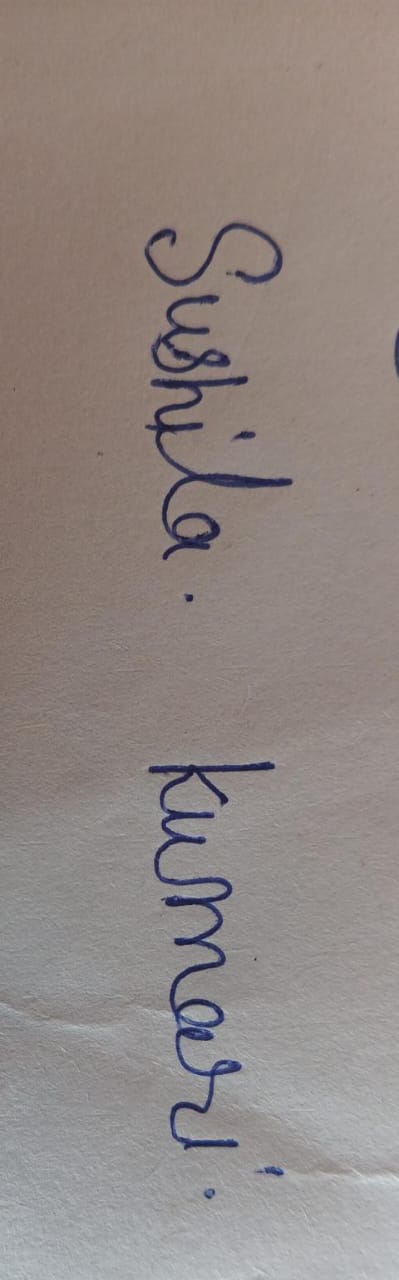 Sushila. kumari.